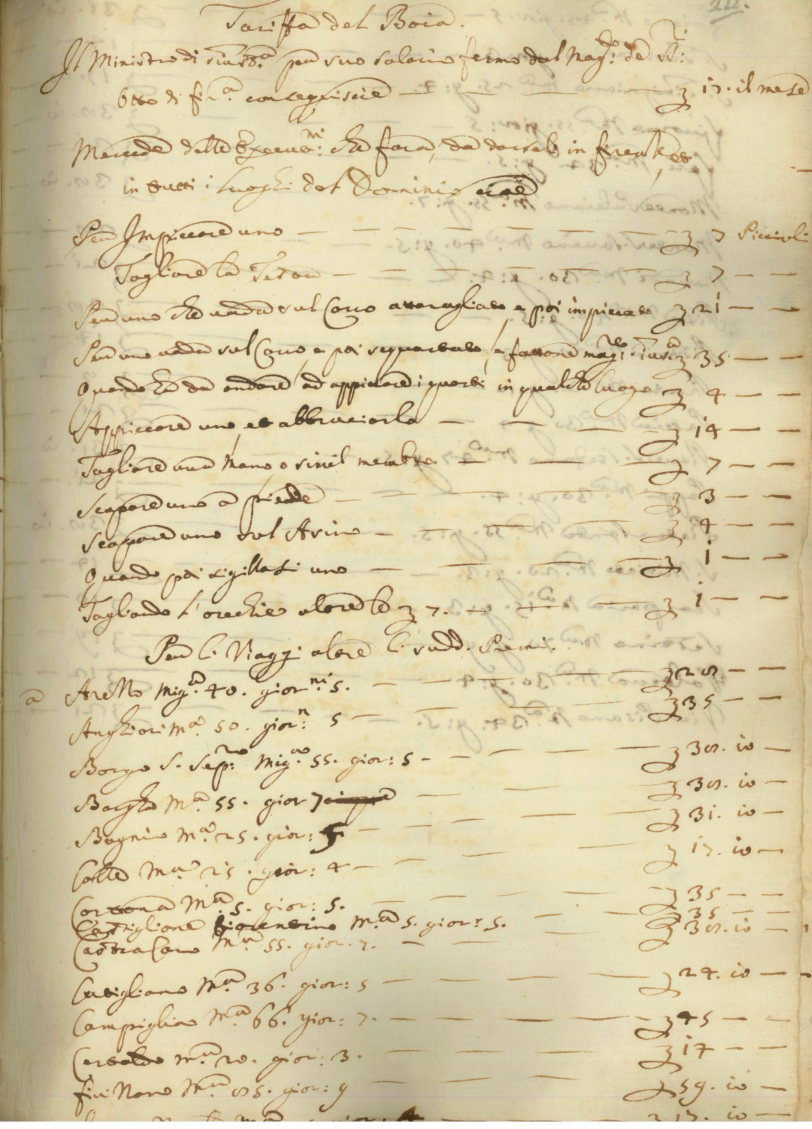 Tariffa del Boia.
Il Ministro di Giust.a per suo salario fermo dal Mag.to de SS:
Otto di fir.a conseguisce — — — 17. il mese
Mercede delle che farà, da darseli in firenze, et
in tutti i Luoghi del Dominio cioè
Per Impiccare uno — — — 7 Piccioli
Tagliare la Testa — — — 7 — —
Per uno che vada sul Carro attanagliato e poi impiccato 21 — —
Per uno vada sul Carro e poi squartato, e fattone 35 — —
Quando ha da andare ad appiccare i quarti in qualche luogo 4 — —
Appiccare uno, et abbruciarlo — — — 14 — —
Tagliare una Mano o simil membro — — — 7 — —
Scopare uno a piede — — — 3 — —
Scopare uno sul Asino — — — 4 — —
Quando poi sigillasi uno — — — 1 — —
Tagliando l'orechie oltre le 7. — — — 1 — —
Per li Viaggi oltre li sudd. Premi.
a
mig.a 40. gior.ni 5. — — — 28 — —
Anghiari m.a 50. gior.n 5 — — — 35 — —
Borgo S. Sep.ro mig.a 55. gior: 5 — — — 38. 10 —
M.a 55. gior 7 — — — 38. 10 —
Bagnio M.a 25. gior: 5 — — — 31. 10 —
Colle M.a 25. gior: 4 — — — 17. 10 —
Cortona M.a 5. gior: 5. — — — 35 — —
Castiglione fiorentino M.a 5. gior: 5. — — — 35 — —
Castracaro M.a 55. gior. 7. — — — 38. 10 —
Cutigliano M.a 36. gior: 5 — — — 24. 10 —
Campiglia M.a 66. gior: 7. — — — 45 — —
Certaldo m.a 20. gior: 3. — — — 14 — —
M.a 85. gior: 9 — — — 59. 10 —